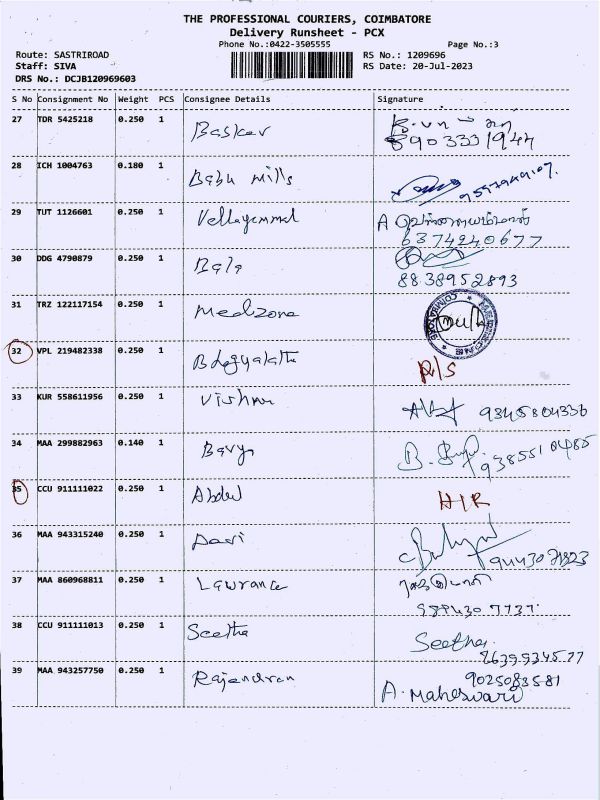 THE PROFESSIONAL COURIERS, COIMBATORE
Delivery Runsheet - PCX
Phone No.:0422-3505555 Page No.:3
Route: SASTRIROAD RS No.: 1209696
Staff: SIVA RS Date: 20-Jul-2023
DRS No.: DCJB120969603
S No Consignment No Weight PCS Consignee Details Signature
27 TDR 5425218 0.250 1 Basker
8903331944
28 ICH 1004763 0.180 1 Babu Mills
29 TUT 1126601 0.250 1 Vellayammal A
6374240677
30 DDG 4790879 0.250 1 Bala
8838952893
31 TRZ 122117154 0.250 1 Medzone
32 VPL 219482338 0.250 1 R/S
33 KUR 558611956 0.250 1 Vishnu 9345804336
34 MAA 299882963 0.140 1 Bavya B.
9385510485
35 CCU 911111022 0.250 1 Abdul H/R
36 MAA 943315240 0.250 1
37 MAA 860968811 0.250 1 Lawrance
38 CCU 911111013 0.250 1 Seetha Seetha
39 MAA 943257750 0.250 1 Rajendran 9025083581
A. Maheswari